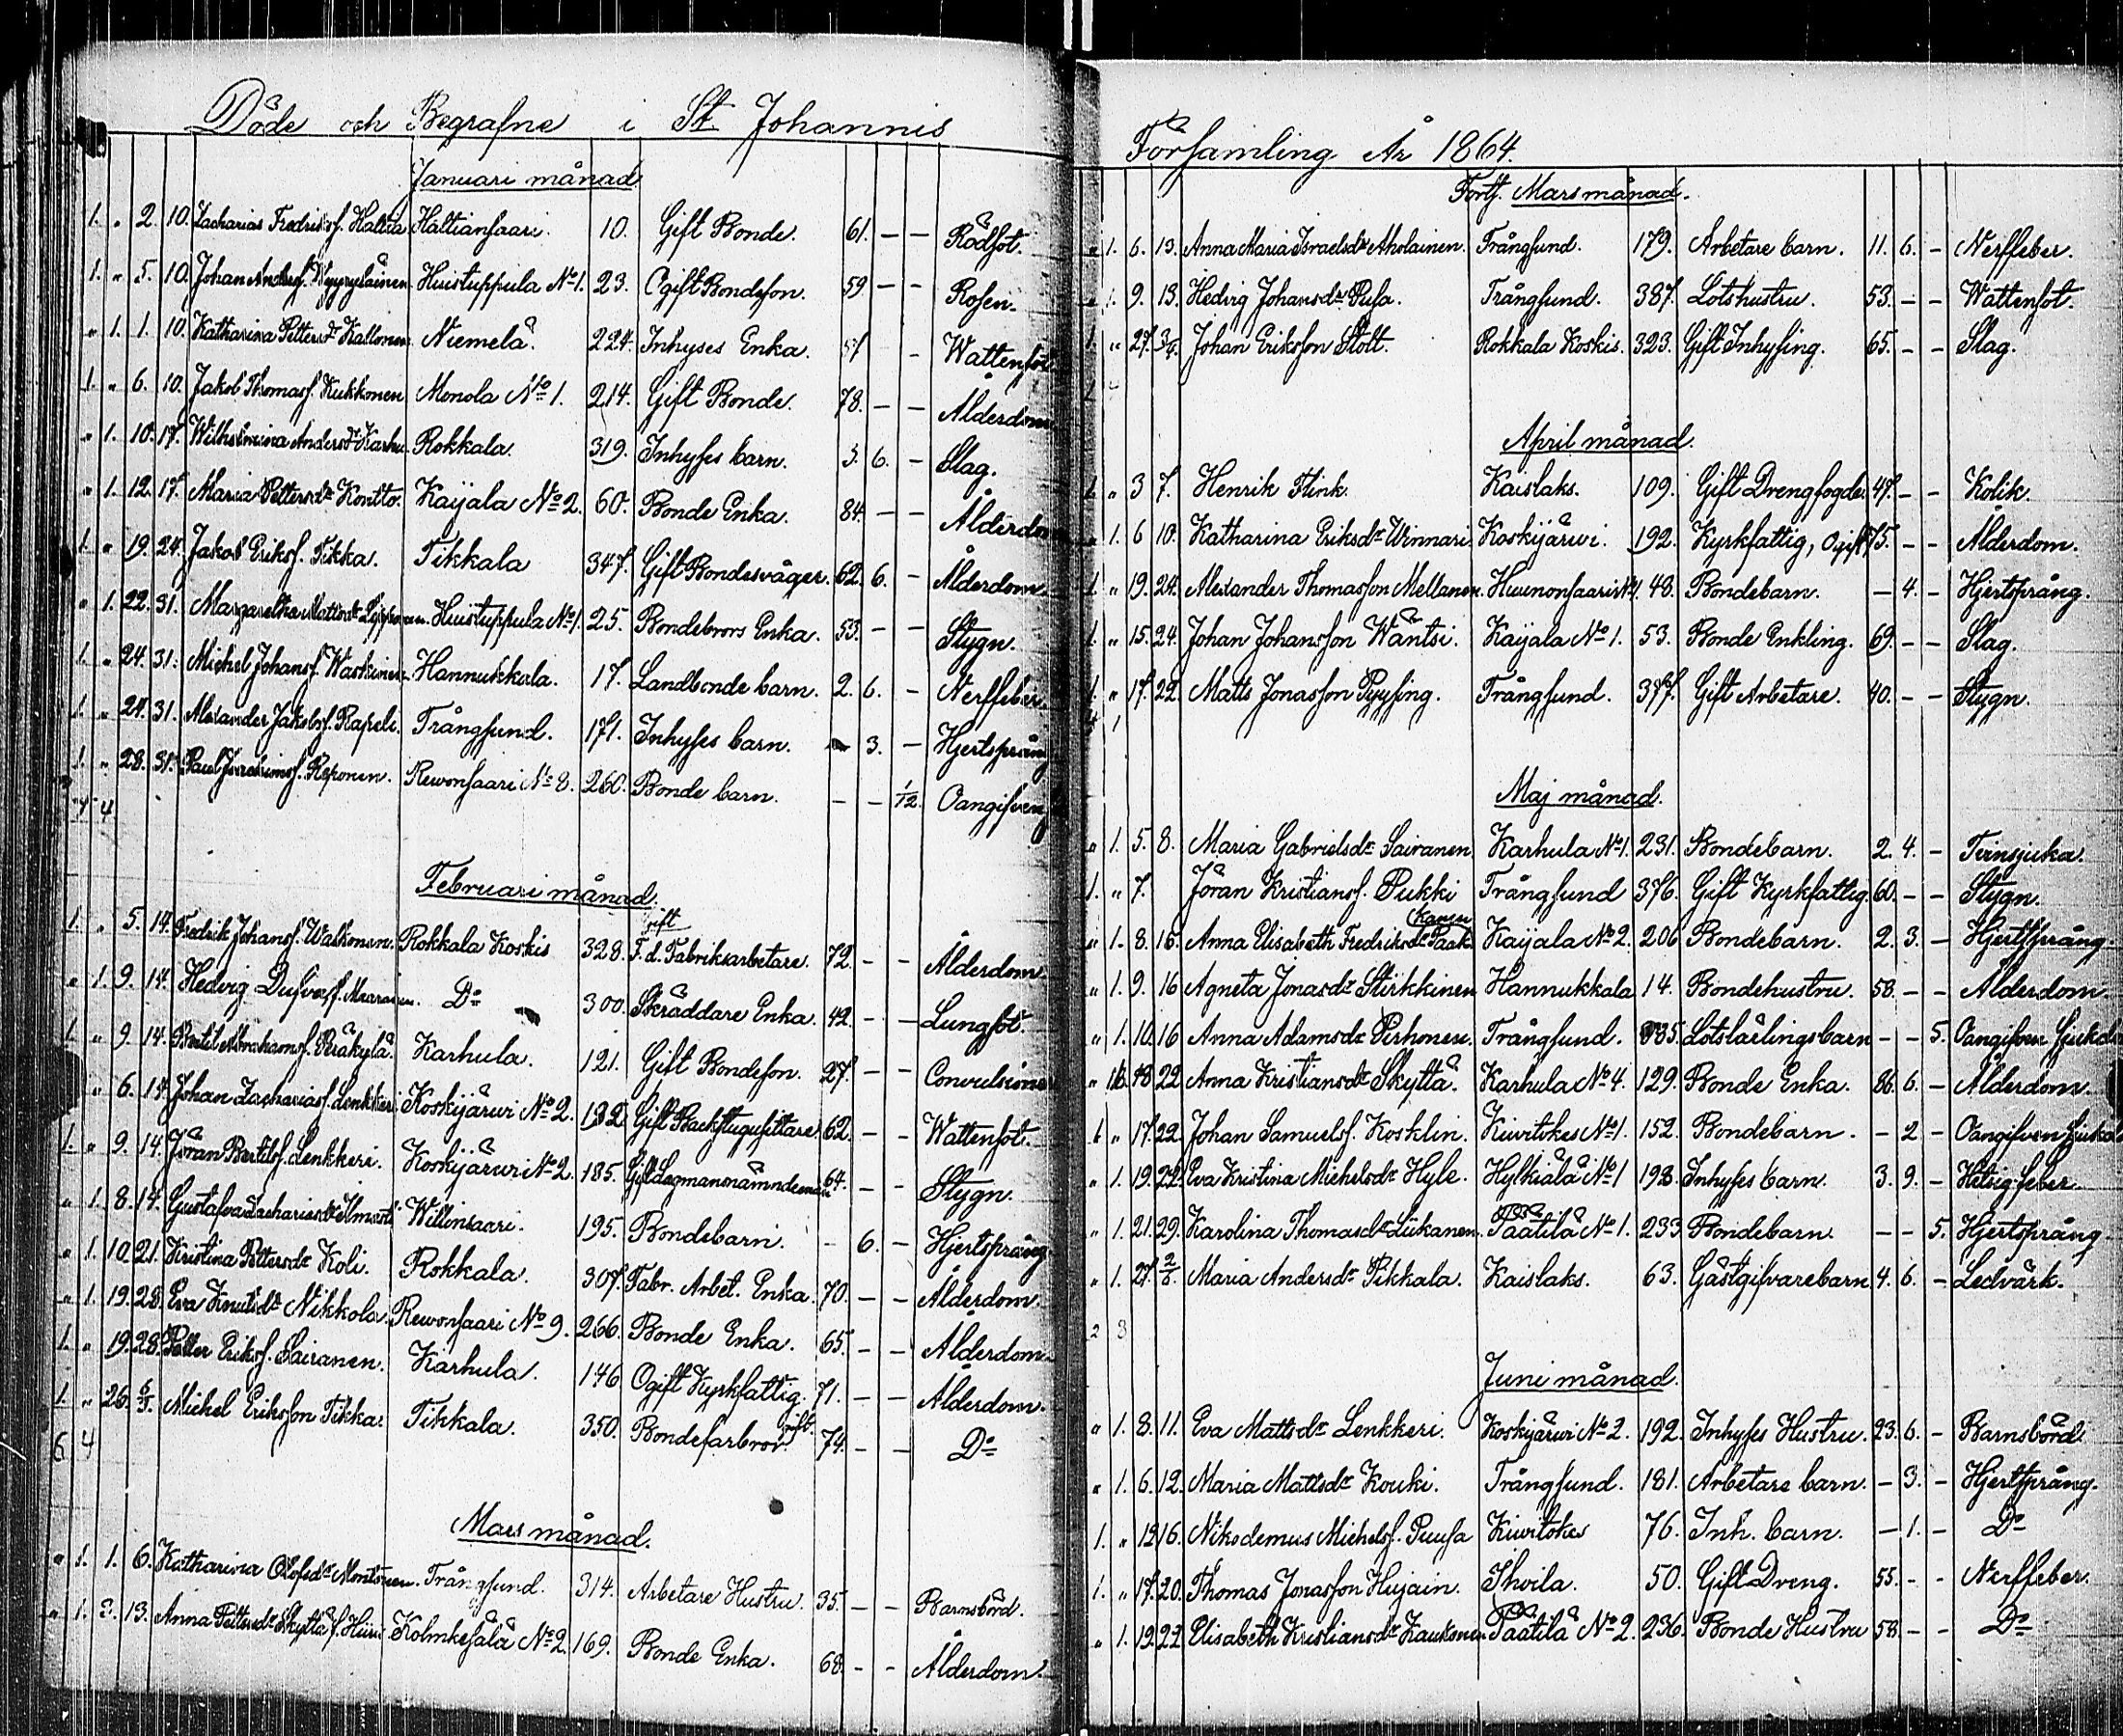 Döde och Begrafne i St Johannis
Januari månad
1. " 2. 10. Zacharias Fredriksf. Haltia Haltiansaari. 10. Gift Bonde. 61. — — Rödsot.
1. " 5. 10. Johan Andersf. Huistuppula No 1. 23. Ogift Bondeson. 59 — — Rosen.
" 1. 1. 10. Katharina Pettersdr Kallonen Niemelä. 224. Inhyses Enka. 57 - Wattensot
1. " 6. 10. Jakob Thomasf. Kukkonen Monola No 1. 214. Gift Bonde. 78. — — Ålderdom
" 1. 10. 17. Wilhelmina Andersdr Karhu Rokkala. 319. Inhyses barn. 3. 6. — Slag.
" 1. 12. 17. Maria Pettersdr Kontto. Kaijala No 2. 60. Bonde Enka. 84. — — Ålderdom
1. " 19. 24. Jakob Eriksf. Tikka. Tikkala 347. Gift Bondesvåger. 62. 6. — Ålderdom
" 1. 22. 31. Margaretha Mattsdr Huistuppula No 1. 25. Bondebrors Enka. 53. — — Stygn.
1. " 24. 31. Michel Johansf. Hannukkala. 17. Landbonde barn. 2. 6. — Nerffeber
1. " 24. 31. Alexander Jakobsf. Rapeli. Trångsund. 171. Inhyses barn. — 3. — Hjertsprång
1. " 28. 31. Paul Joachimsf. Reponen. Rewonsaari No 8. 260. Bonde barn. — — 1/12. Oangifven
7 4
Februari månad.
1. " 5. 14. Fredrik Johansf. Waskonen. Rokkala Koskis 328. gift F.d. Fabriksarbetare. 72. — — Ålderdom.
" 1. 9. 14. Hedvig Do 300. Skräddare Enka. 42. — — Lungsot.
1. " 9. 14. Bertil Abrahamsf. Peräkylä. Karhula. 121. Gift Bondeson. 27. — — Convulsioner
" 6. 14. Johan Zachariasf. Lenkkeri Koskijärwi No 2. 182. Gift Backstugusittare 62. — — Wattensot.
1. " 9. 14. Jöran Bertilsf. Lenkkeri. Koskijärwi No 2. 185. Gift Lagmansnämndeman 64. — — Stygn.
" 1. 8. 14. Gustafva Zachariasdr Ilmasti Willonsaari. 195. Bondebarn. - 6. — Hjertsprång
" 1. 10. 21. Kristina Pettersdr Koli. Rokkala. 307. Fabr. Arbet. Enka. 70. — — Ålderdom.
" 1. 19. 28. Eva Knutsdr Nikkola. Rewonsaari No 9. 266. Bonde Enka. 65. — — Ålderdom.
1. " 19. 28. Petter Eriksf. Sairanen. Karhula. 146 Ogift Kyrkfattig. 71. — — Ålderdom.
1. " 26. 6/3. Michel Eriksson Tikka. Tikkala. 350. Bondefarbror gift. 74. — — Do
6 4
Mars månad.
" 1. 1. 6. Katharina Olofsdr Montonen. Trångsund. 314. Arbetare Hustru. 35. — — Barnsbörd.
" 1. 3. 13. Anna Pettersdr Skyttä f. Hiiri Kolmikesälä No 2. 169. Bonde Enka. 68. - - Ålderdom.
Församling År 1864.
Forts. Mars månad.
" 1. 6. 13. Anna Maria Israelsdr Aholainen. Trångsund. 179. Arbetare barn. 11. 6. - Nerffeber.
" 1. 9. 13. Hedvig Johansdr Pusa. Trångsund. 387. Lotshustru. 53. — — Wattensot.
1. " 27. 3/4. Johan Eriksson Stolt. Rokkala Koskis. 323. Gift Inhysing. 65. — — Slag.
April månad.
1. " 3 7. Henrik Flink. Kaislaks. 109. Gift Drengfogde. 47. — — Kolik.
" 1. 6 10. Katharina Eriksdr Winnari Koskijärwi. 192. Kyrkfattig, Ogift 75. — — Ålderdom.
1. " 19. 24. Alexander Thomasson Mellanen. Huunonsaari No 1. 48. Bondebarn. — 4. — Hjertsprång.
1. " 15. 24. Johan Johansson Wäntsi. Kaijala No 1. 53. Bonde Enkling. 69. — — Slag.
1. " 17. 22. Matts Jonasson Pyysing. Trångsund. 377. Gift Arbetare. 40. — — Stygn.
4 1
Maj månad.
" 1. 5. 8. Maria Gabrielsdr Sairanen Karhula No 1. 231. Bondebarn. 2. 4. — Tvinsjuka.
1. " 7. Jöran Kristiansf. Pukki Trångsund 376. Gift Kyrkfattig. 60. — — Stygn.
" 1. 8. 16. Anna Elisabeth Fredriksdr Paakkanen Kaijala No 2. 206 Bondebarn. 2. 3. — Hjertsprång.
" 1. 9. 16 Agneta Jonasdr Stirkkinen Hannukkala 14. Bondehustru. 58. — — Ålderdom.
" 1. 10. 16 Anna Adamsdr Pirhonen. Trångsund. 335. Lotslärlingsbarn — — 5. Oangifven sjukdom
" 1. 18 22 Anna Kristiansdr Skyttä. Karhula No 4. 129. Bonde Enka. 86. 6. — Ålderdom.
1. " 17. 22. Johan Samuelsf. Kosklin. Kiiwitokes No 1. 152. Bondebarn. — 2 — Oangifven sjukdom
" 1. 19. 22. Eva Kristina Michelsdr Hyle. Hylkiälä No 1 198. Inhyses barn. 3. 9. — Hetsig feber.
" 1. 21. 29. Karolina Thomasdr Liikanen. Päätilä No 1. 233 Bondebarn. — — 5. Hjertsprång
" 1. 27. Maria Andersdr Pikkala. Kaislaks. 63. Gästgifvarebarn. 4. 6. — Ledvärk.
2 8
Juni månad.
" 1. 8. 11. Eva Mattsdr Lenkkeri. Koskijärwi No 2. 192. Inhyses Hustru. 23. 6. — Barnsbörd.
" 1. 6. 12. Maria Mattsdr Kouki. Trångsund. 181. Arbetare barn. — 3. — Hjertsprång.
1. " 12 16. Nikodemus Michelsf. Puusa Kiiwitokes 76. Inh. barn. — 1. — Do
1. " 17. 20. Thomas Jonasson Hujain. Ihoila. 50. Gift Dreng. 55. — — Nerffeber.
" 1. 19. 22 Elisabeth Kristiansdr Kaukonen Päätilä No 2. 236. Bonde Hustru 58. — — Do